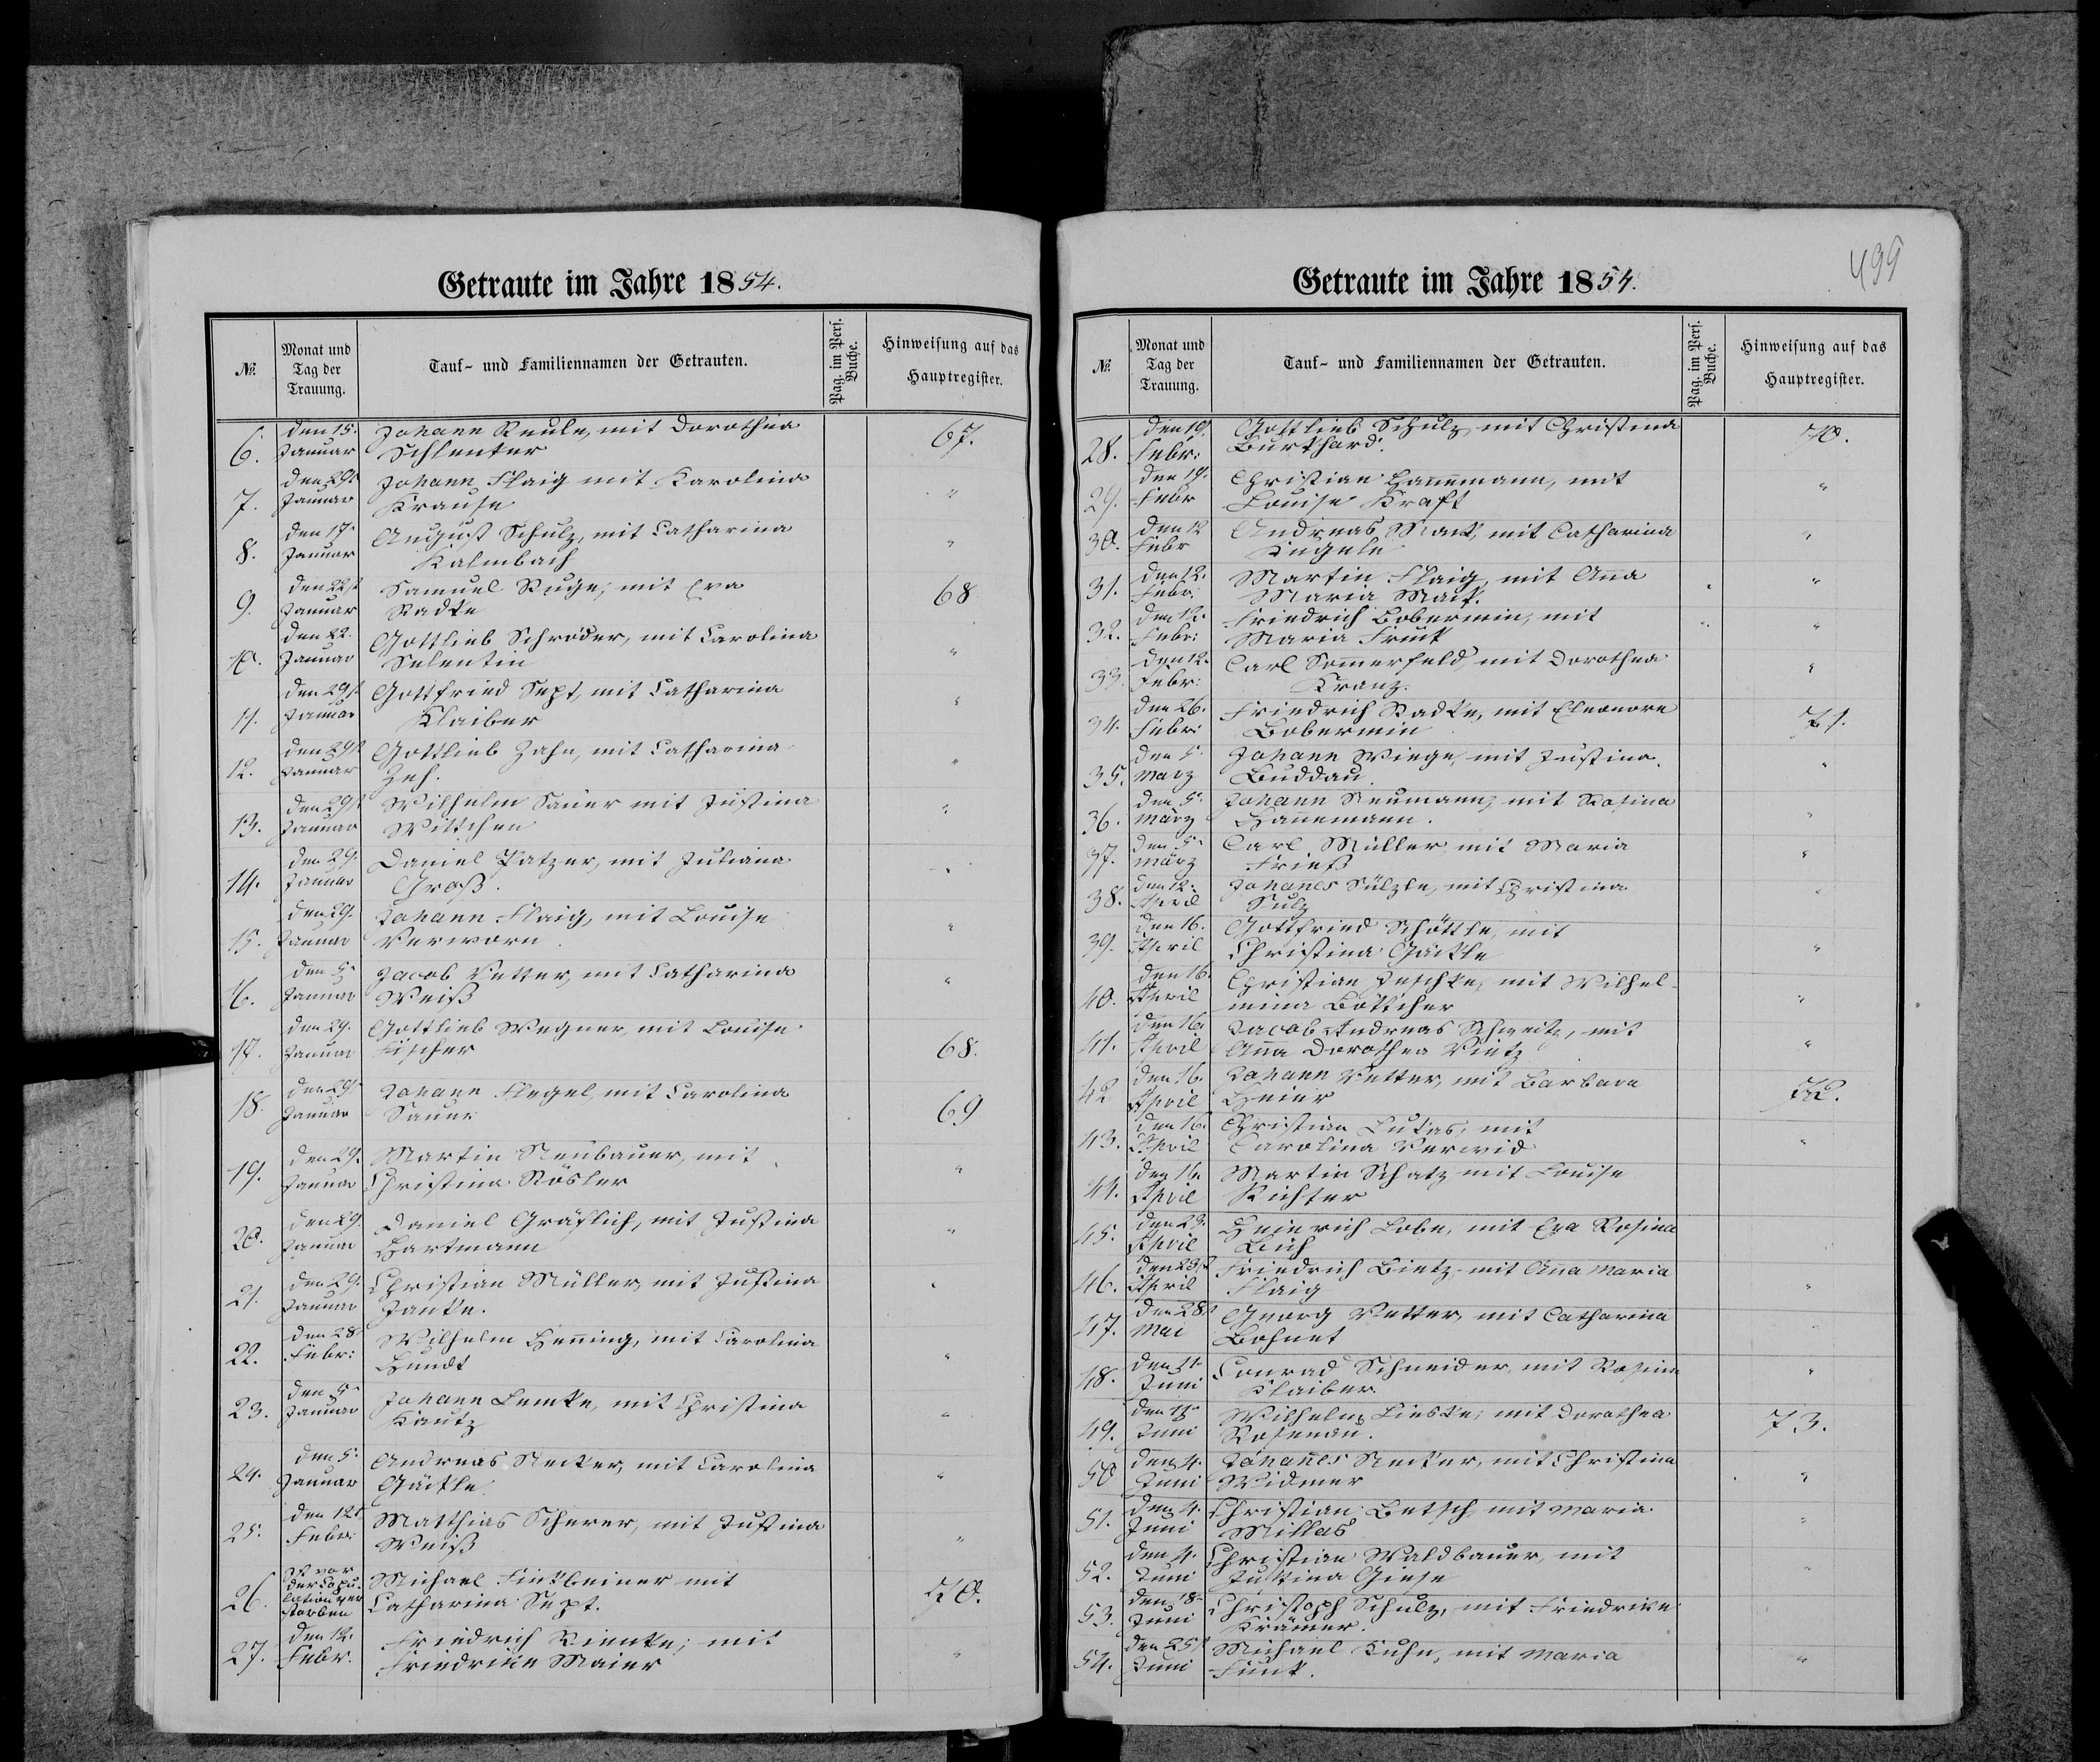 Getraute im Jahre 1854.
№.
Monat und
Tag der
Trauung.
Tauf- und Familiennamen der Getrauten.
Pag. im Pers.
Buche.
Hinweisung auf das
Hauptregister.
6. den 15. Januar Johann Reule, mit Dorothea 67.
Schlenker
7. den 29t Januar Johann Flaig mit Karolina "
Krause
8. den 17. Januar August Schulz, mit Catharina "
Kalmbach
9. den 22st Januar Samuel Ruge, mit Eva 68
Radke
10. den 22. Januar Gottlieb Schröder, mit Carolina "
Selentin
11. den 29st Januar Gottfried Sept, mit Catharina "
Klaiber
12. den 29st Januar Gottlieb Zahn, mit Catharina "
Zeh.
13. den 29st Januar Wilhelm Sauer mit Justina "
Wittchen
14. den 29. Januar Daniel Patzer, mit Juliana "
Groß.
15. den 29. Januar Johann Flaig, mit Louise "
Verworn
16. den 5. Januar Jacob Vetter, mit Catharina "
Weiß
17. den 29. Januar Gottlieb Wegner, mit Louise 68.
Fischer
18. den 29st Januar Johann Flegel, mit Carolina 69
Sauer
19. den 29. Januar Martin Neubauer, mit "
Christina Rösler
20. den 29. Januar Daniel Gräflich, mit Justina "
Hartmann
21. den 29. Januar Christian Müller, mit Justina "
Janke.
22. den 28. Febr: Wilhelm Henning, mit Carolina "
Hundt
23. den 5. Januar Johann Lemke, mit Christina "
Kautz
24. den 5. Januar Andreas Necker, mit Carolina "
Gäckle
25. den 12t Febr: Matthias Scherer, mit Justina "
Weiß
26. Ist vor der Copulation verstorben Michael Finkbeiner mit 70.
Catharina Sept.
27. den 12. Febr. Friedrich Rienke, mit "
Friedrike Maier
Getraute im Jahre 1854.
499
№.
Monat und
Tag der
Trauung.
Tauf- und Familiennamen der Getrauten.
Pag. im Pers.
Buche.
Hinweisung auf das
Hauptregister.
28. den 19. Febr: Gottlieb Schulz, mit Christina 70.
Burkhard.
29. den 19. Febr Christian Hannemann, mit "
Louise Kraft
30. den 12 Febr Andreas Mack, mit Catharina "
Kugele
31. den 12. Febr. Martin Flaig, mit Anna "
Maria Mack.
32. den 12. Febr: Friedrich Bobermin, mit "
Maria Frück
33. den 12. Febr: Carl Sommerfeld mit Dorothea "
Kranz.
34. den 26. Febr: Friedrich Radke, mit Eleonore 71.
Bobermin
35. den 5. März Johann Wiege, mit Justina "
Buddau
36. den 5. März Johann Neumann, mit Rosina "
Hannemann.
37. den 5. März Carl Müller, mit Maria "
Frieß
38. den 12. April Johannes Sülzle, mit Christina "
Sulz
39. den 16. April Gottfried Schöttle, mit "
Christina Gäckle
40. den 16. April Christian Jeschke, mit Wilhel- "
mina Böttcher
41. den 16. April Jacob Andreas Schweitz, mit "
Anna Dorothea Vietz
42 den 16. April Johann Vetter, mit Barbara 72.
Heier
43. den 16. April Christian Lukas, mit "
Carolina Verwid
44. den 16. April Martin Schatz mit Louise
Richter
45. den 23. April Heinrich Lobe, mit Eva Rosina
Buch
46. den 23st April Friedrich Bietz, mit Anna Maria "
Flaig
47. den 28st Mai Georg Vetter, mit Catharina "
Bohnet
48. den 11. Juni Conrad Schneider, mit Rosina "
Klaiber
49. den 11. Juni Wilhelm Lieske, mit Dorothea 73.
Rosenau.
50 den 4. Juni Johannes Necker, mit Christina "
Widmer
51. den 4. Juni Christian Betsch mit Maria "
Millas
52. den 4. Juni Christian Waldbauer, mit "
Justina Giese
53. den 18. Juni Christoph Schulz, mit Friedrike
Krämer.
54. den 25st Juni Michael Kuhn, mit Maria "
Funk.